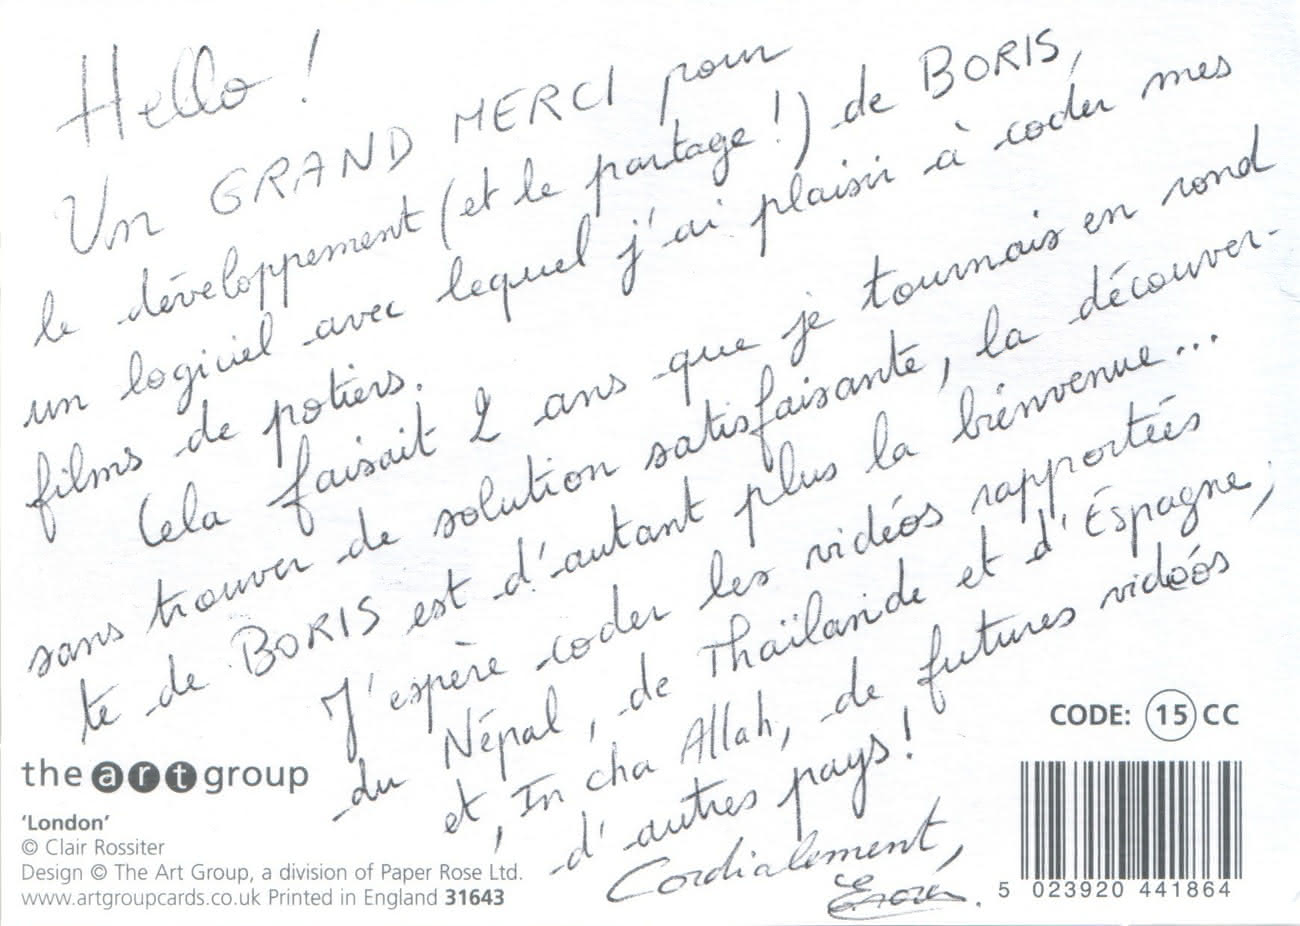 Hello !
Un GRAND MERCI pour
le développement (et le partage !) de BORIS,
un logiciel avec lequel j'ai plaisir à coder mes
films de potiers.
Cela faisait 2 ans que je tournais en rond
sans trouver de solution satisfaisante, la découver-
te de BORIS est d'autant plus la bienvenue...
J'espère coder les vidéos rapportées
du Népal, de Thaïlande et d'Espagne,
et, In cha Allah, de futures vidéos
d'autres pays !
Cordialement,
CODE: 15 CC
the art group
'London'
© Clair Rossiter
Design © The Art Group, a division of Paper Rose Ltd.
www.artgroupcards.co.uk Printed in England 31643
5 023920 441864